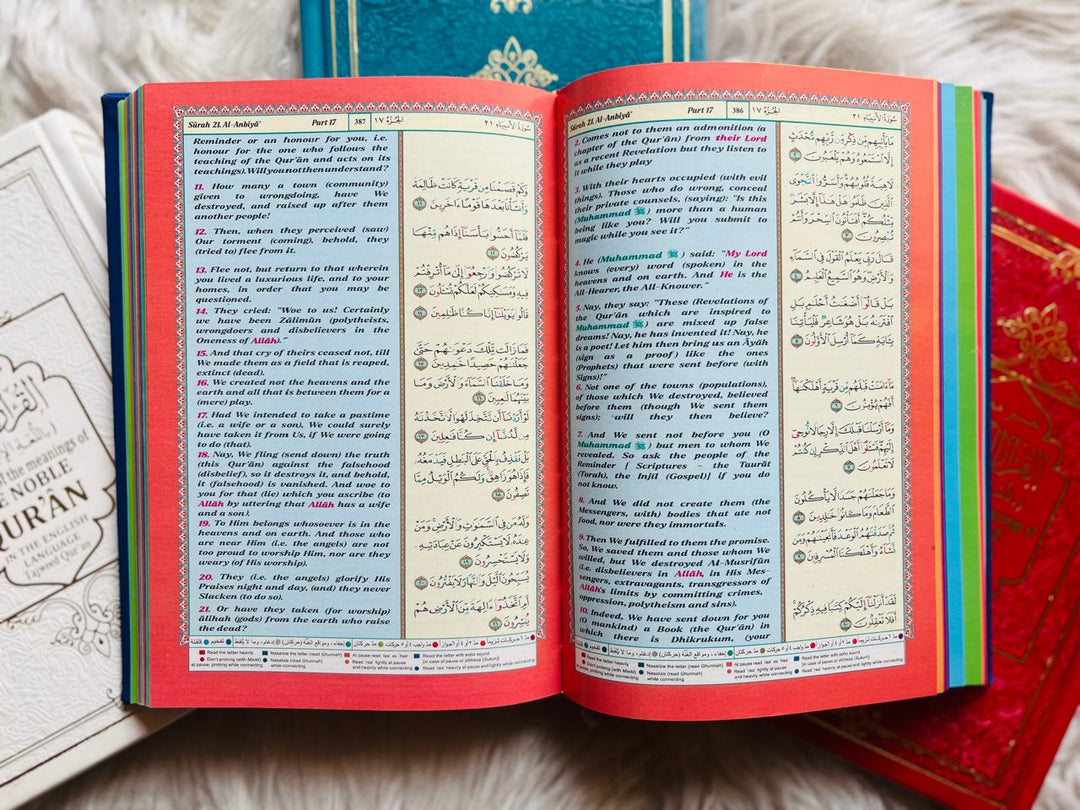 Sûrah 21. Al-Anbiyâ'
Part 17
386
الجزء ١٧
سورة الأنبياء ٢١
2. Comes not to them an admonition (a
chapter of the Qur'ân) from their Lord
as a recent Revelation but they listen to
it while they play
3. With their hearts occupied (with evil
things). Those who do wrong, conceal
their private counsels, (saying): "Is this
(Muhammad ﷺ) more than a human
being like you? Will you submit to
magic while you see it?"
4. He (Muhammad ﷺ) said: "My Lord
knows (every) word (spoken) in the
heavens and on earth. And He is the
All-Hearer, the All-Knower."
5. Nay, they say: "These (Revelations of
the Qur'ân which are inspired to
Muhammad ﷺ) are mixed up false
dreams! Nay, he has invented it! Nay, he
is a poet! Let him then bring us an Âyâh
(sign as a proof) like the ones
(Prophets) that were sent before (with
Signs)!"
6. Not one of the towns (populations),
of those which We destroyed, believed
before them (though We sent them
signs); will they then believe?
7. And We sent not before you (O
Muhammad ﷺ) but men to whom We
revealed. So ask the people of the
Reminder [ Scriptures – the Taurât
(Torah), the Injîl (Gospel)] if you do
not know.
8. And We did not create them (the
Messengers, with) bodies that ate not
food, nor were they immortals.
9. Then We fulfilled to them the promise.
So, We saved them and those whom We
willed, but We destroyed Al-Musrifûn
(i.e. disbelievers in Allâh, in His Mes-
sengers, extravagants, transgressors of
Allâh's limits by committing crimes,
oppression, polytheism and sins).
10. Indeed, We have sent down for you
(O mankind) a Book (the Qur'ân) in
which there is Dhikrukum, (your
مَا يَأْتِيهِم مِّن ذِكْرٍ مِّن رَّبِّهِم مُّحْدَثٍ
إِلَّا ٱسْتَمَعُوهُ وَهُمْ يَلْعَبُونَ ٢
لَاهِيَةً قُلُوبُهُمْ وَأَسَرُّوا۟ ٱلنَّجْوَى
ٱلَّذِينَ ظَلَمُوا۟ هَلْ هَٰذَآ إِلَّا بَشَرٌ
مِّثْلُكُمْ أَفَتَأْتُونَ ٱلسِّحْرَ وَأَنتُمْ
تُبْصِرُونَ ٣
قَالَ رَبِّى يَعْلَمُ ٱلْقَوْلَ فِى ٱلسَّمَآءِ
وَٱلْأَرْضِ وَهُوَ ٱلسَّمِيعُ ٱلْعَلِيمُ ٤
بَلْ قَالُوٓا۟ أَضْغَٰثُ أَحْلَٰمٍ بَلِ
ٱفْتَرَىٰهُ بَلْ هُوَ شَاعِرٌ فَلْيَأْتِنَا
بِـَٔايَةٍ كَمَآ أُرْسِلَ ٱلْأَوَّلُونَ ٥
مَآ ءَامَنَتْ قَبْلَهُم مِّن قَرْيَةٍ أَهْلَكْنَٰهَآ
أَفَهُمْ يُؤْمِنُونَ ٦
وَمَآ أَرْسَلْنَا قَبْلَكَ إِلَّا رِجَالًا نُّوحِىٓ
إِلَيْهِمْ فَسْـَٔلُوٓا۟ أَهْلَ ٱلذِّكْرِ إِن كُنتُمْ
لَا تَعْلَمُونَ ٧
وَمَا جَعَلْنَٰهُمْ جَسَدًا لَّا يَأْكُلُونَ
ٱلطَّعَامَ وَمَا كَانُوا۟ خَٰلِدِينَ ٨
ثُمَّ صَدَقْنَٰهُمُ ٱلْوَعْدَ فَأَنجَيْنَٰهُمْ وَمَن
نَّشَآءُ وَأَهْلَكْنَا ٱلْمُسْرِفِينَ ٩
لَقَدْ أَنزَلْنَآ إِلَيْكُمْ كِتَٰبًا فِيهِ ذِكْرُكُمْ
أَفَلَا تَعْقِلُونَ ١٠
Read the letter heavily
Nasalize the letter (read Ghunnah)
At pause read 'taa' as 'haa'
Read the letter with echo sound
Don't prolong (with Madd)
at pause, prolong while connecting
Nasalize (read Ghunnah)
while connecting
Read 'raa' lightly at pause
and heavily while connecting
Read 'raa' heavily at pause and lightly while connecting
Sûrah 21. Al-Anbiyâ'
Part 17
387
الجزء ١٧
سورة الأنبياء ٢١
Reminder or an honour for you, i.e.
honour for the one who follows the
teaching of the Qur'ân and acts on its
teachings). Will you not then understand?
11. How many a town (community)
given to wrongdoing, have We
destroyed, and raised up after them
another people!
12. Then, when they perceived (saw)
Our torment (coming), behold, they
(tried to) flee from it.
13. Flee not, but return to that wherein
you lived a luxurious life, and to your
homes, in order that you may be
questioned.
14. They cried: "Woe to us! Certainly
we have been Zâlimûn (polytheists,
wrongdoers and disbelievers in the
Oneness of Allâh)."
15. And that cry of theirs ceased not, till
We made them as a field that is reaped,
extinct (dead).
16. We created not the heavens and the
earth and all that is between them for a
(mere) play.
17. Had We intended to take a pastime
(i.e. a wife or a son), We could surely
have taken it from Us, if We were going
to do (that).
18. Nay, We fling (send down) the truth
(this Qur'ân) against the falsehood
(disbelief), so it destroys it, and behold,
it (falsehood) is vanished. And woe to
you for that (lie) which you ascribe (to
Allah by uttering that Allah has a wife
and a son).
19. To Him belongs whosoever is in the
heavens and on earth. And those who
are near Him (i.e. the angels) are not
too proud to worship Him, nor are they
weary (of His worship).
20. They (i.e. the angels) glorify His
Praises night and day, (and) they never
Slacken (to do so).
21. Or have they taken (for worship)
âlihah (gods) from the earth who raise
the dead?
وَكَمْ قَصَمْنَا مِن قَرْيَةٍ كَانَتْ ظَالِمَةً
وَأَنشَأْنَا بَعْدَهَا قَوْمًا ءَاخَرِينَ ١١
فَلَمَّآ أَحَسُّوا۟ بَأْسَنَآ إِذَا هُم مِّنْهَا
يَرْكُضُونَ ١٢
لَا تَرْكُضُوا۟ وَٱرْجِعُوٓا۟ إِلَىٰ مَآ أُتْرِفْتُمْ
فِيهِ وَمَسَٰكِنِكُمْ لَعَلَّكُمْ تُسْـَٔلُونَ ١٣
قَالُوا۟ يَٰوَيْلَنَآ إِنَّا كُنَّا ظَٰلِمِينَ ١٤
فَمَا زَالَت تِّلْكَ دَعْوَىٰهُمْ حَتَّىٰ
جَعَلْنَٰهُمْ حَصِيدًا خَٰمِدِينَ ١٥
وَمَا خَلَقْنَا ٱلسَّمَآءَ وَٱلْأَرْضَ وَمَا
بَيْنَهُمَا لَٰعِبِينَ ١٦
لَوْ أَرَدْنَآ أَن نَّتَّخِذَ لَهْوًا لَّٱتَّخَذْنَٰهُ
مِن لَّدُنَّآ إِن كُنَّا فَٰعِلِينَ ١٧
بَلْ نَقْذِفُ بِٱلْحَقِّ عَلَى ٱلْبَٰطِلِ فَيَدْمَغُهُۥ
فَإِذَا هُوَ زَاهِقٌ وَلَكُمُ ٱلْوَيْلُ مِمَّا
تَصِفُونَ ١٨
وَلَهُۥ مَن فِى ٱلسَّمَٰوَٰتِ وَٱلْأَرْضِ وَمَنْ
عِندَهُۥ لَا يَسْتَكْبِرُونَ عَنْ عِبَادَتِهِۦ
وَلَا يَسْتَحْسِرُونَ ١٩
يُسَبِّحُونَ ٱلَّيْلَ وَٱلنَّهَارَ لَا يَفْتُرُونَ ٢٠
أَمِ ٱتَّخَذُوٓا۟ ءَالِهَةً مِّنَ ٱلْأَرْضِ هُمْ
يُنشِرُونَ ٢١
Read the letter heavily
Nasalize the letter (read Ghunnah)
At pause read 'taa' as 'haa'
Read the letter with echo sound
(in case of pause or stillness (Sukun))
Don't prolong (with Madd)
at pause, prolong while connecting
Nasalize (read Ghunnah)
while connecting
Read 'raa' lightly at pause
and heavily while connecting
Read 'raa' heavily at pause and lightly while connecting
of the meanings of
E NOBLE
QUR'ÂN
IN THE ENGLISH
LANGUAGE
Tajweed Qur'an